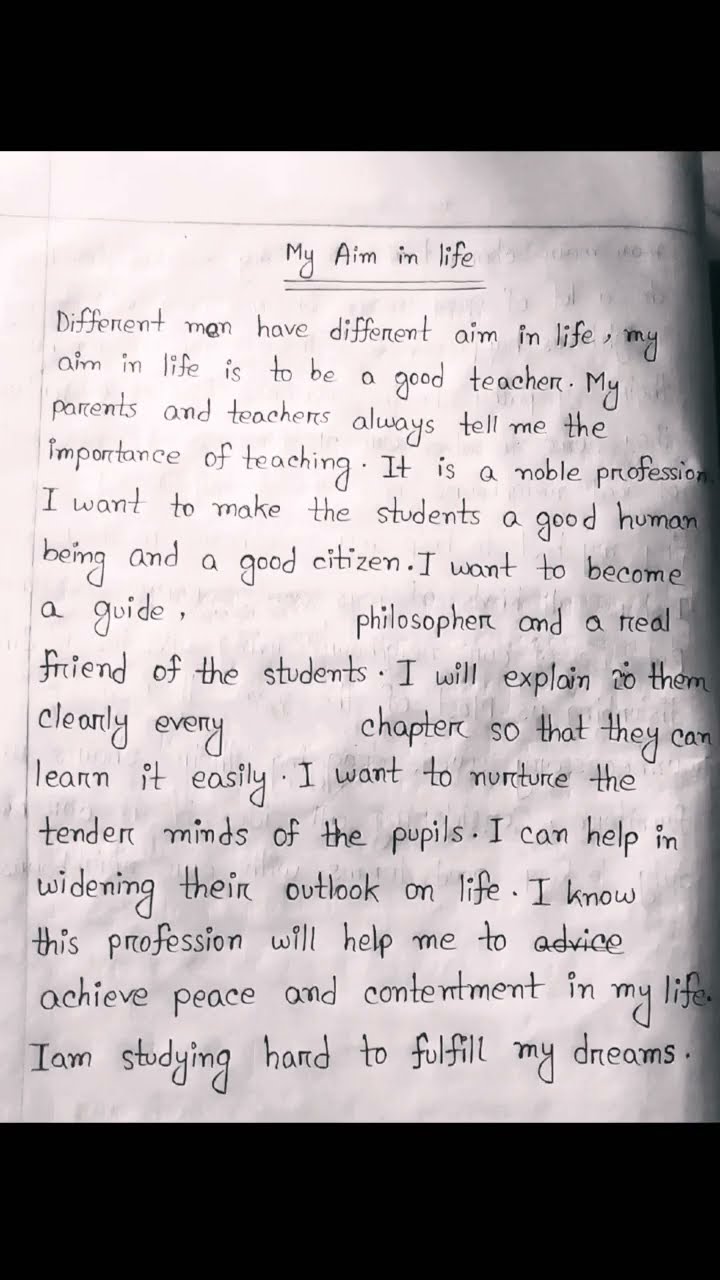 My Aim in life
Different men have different aim in life, my
aim in life is to be a good teacher. My
parents and teachers always tell me the
importance of teaching. It is a noble profession.
I want to make the students a good human
being and a good citizen. I want to become
a guide, philosopher and a real
friend of the students. I will explain to them
clearly every chapter so that they can
learn it easily. I want to nurture the
tender minds of the pupils. I can help in
widening their outlook on life. I know
this profession will help me to advice
achieve peace and contentment in my life.
I am studying hard to fulfill my dreams.